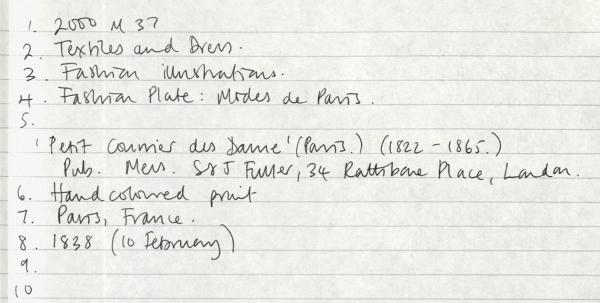 1. 2000 M 37
2. Textiles and Dress.
3. Fashion illustrations.
4. Fashion Plate: Modes de Paris.
5.
'Petit Courrier des Dame' (Paris.) (1822 - 1865.)
Pub. Mers. S & J Fuller, 34 Rathbone Place, London.
6. Hand coloured print
7. Paris, France.
8. 1838 (10 February)
9.
10